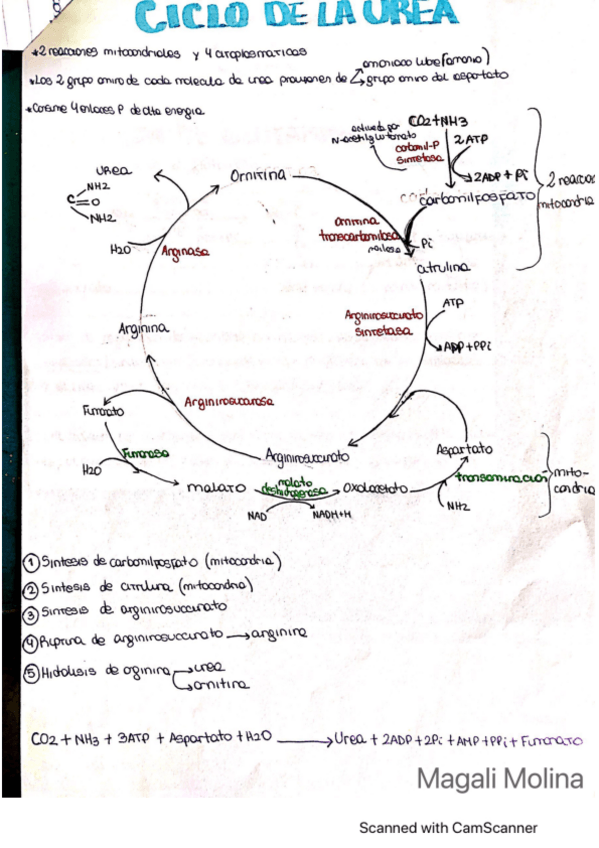 CICLO DE LA UREA
*2 reacciones mitocondriales y 4 citoplasmaticas
amoniaco libre (amonio)
*Los 2 grupo amino de cada molecula de urea provienen de grupo amino del aspartato
*Consume 4 enlaces P de alta energia
CO2+NH3
activada por
N-acetilglutamato
2 ATP
carbamil-P
sintetasa
2ADP + Pi
2 reacc
mitocondria
carbamilfosfato
Urea
NH2
C=O
NH2
Ornitina
H2O
Arginasa
ornitina
transcarbamilasa
Pi
citrulina
ATP
Arginirosuccinato
sintetasa
ADP+PPi
Arginina
Arginirosucc
Fumarato
Arginirosuccinato
Aspartato
Fumarasa
H2O
malato
malato
deshidrogenasa
oxalacetato
transaminación
mito-
condria
NAD
NADH+H
NH2
① Sintesis de carbamilfosfato (mitocondria)
② Sintesis de citrulina (mitocondria)
③ Sintesis de arginirosuccinato
④ Ruptura de arginirosuccinato → arginina
⑤ Hidolisis de arginina → urea
ornitina
CO2 + NH3 + 3ATP + Aspartato + H2O → Urea + 2ADP + 2Pi + AMP + PPi + Fumarato
Magali Molina
Scanned with CamScanner